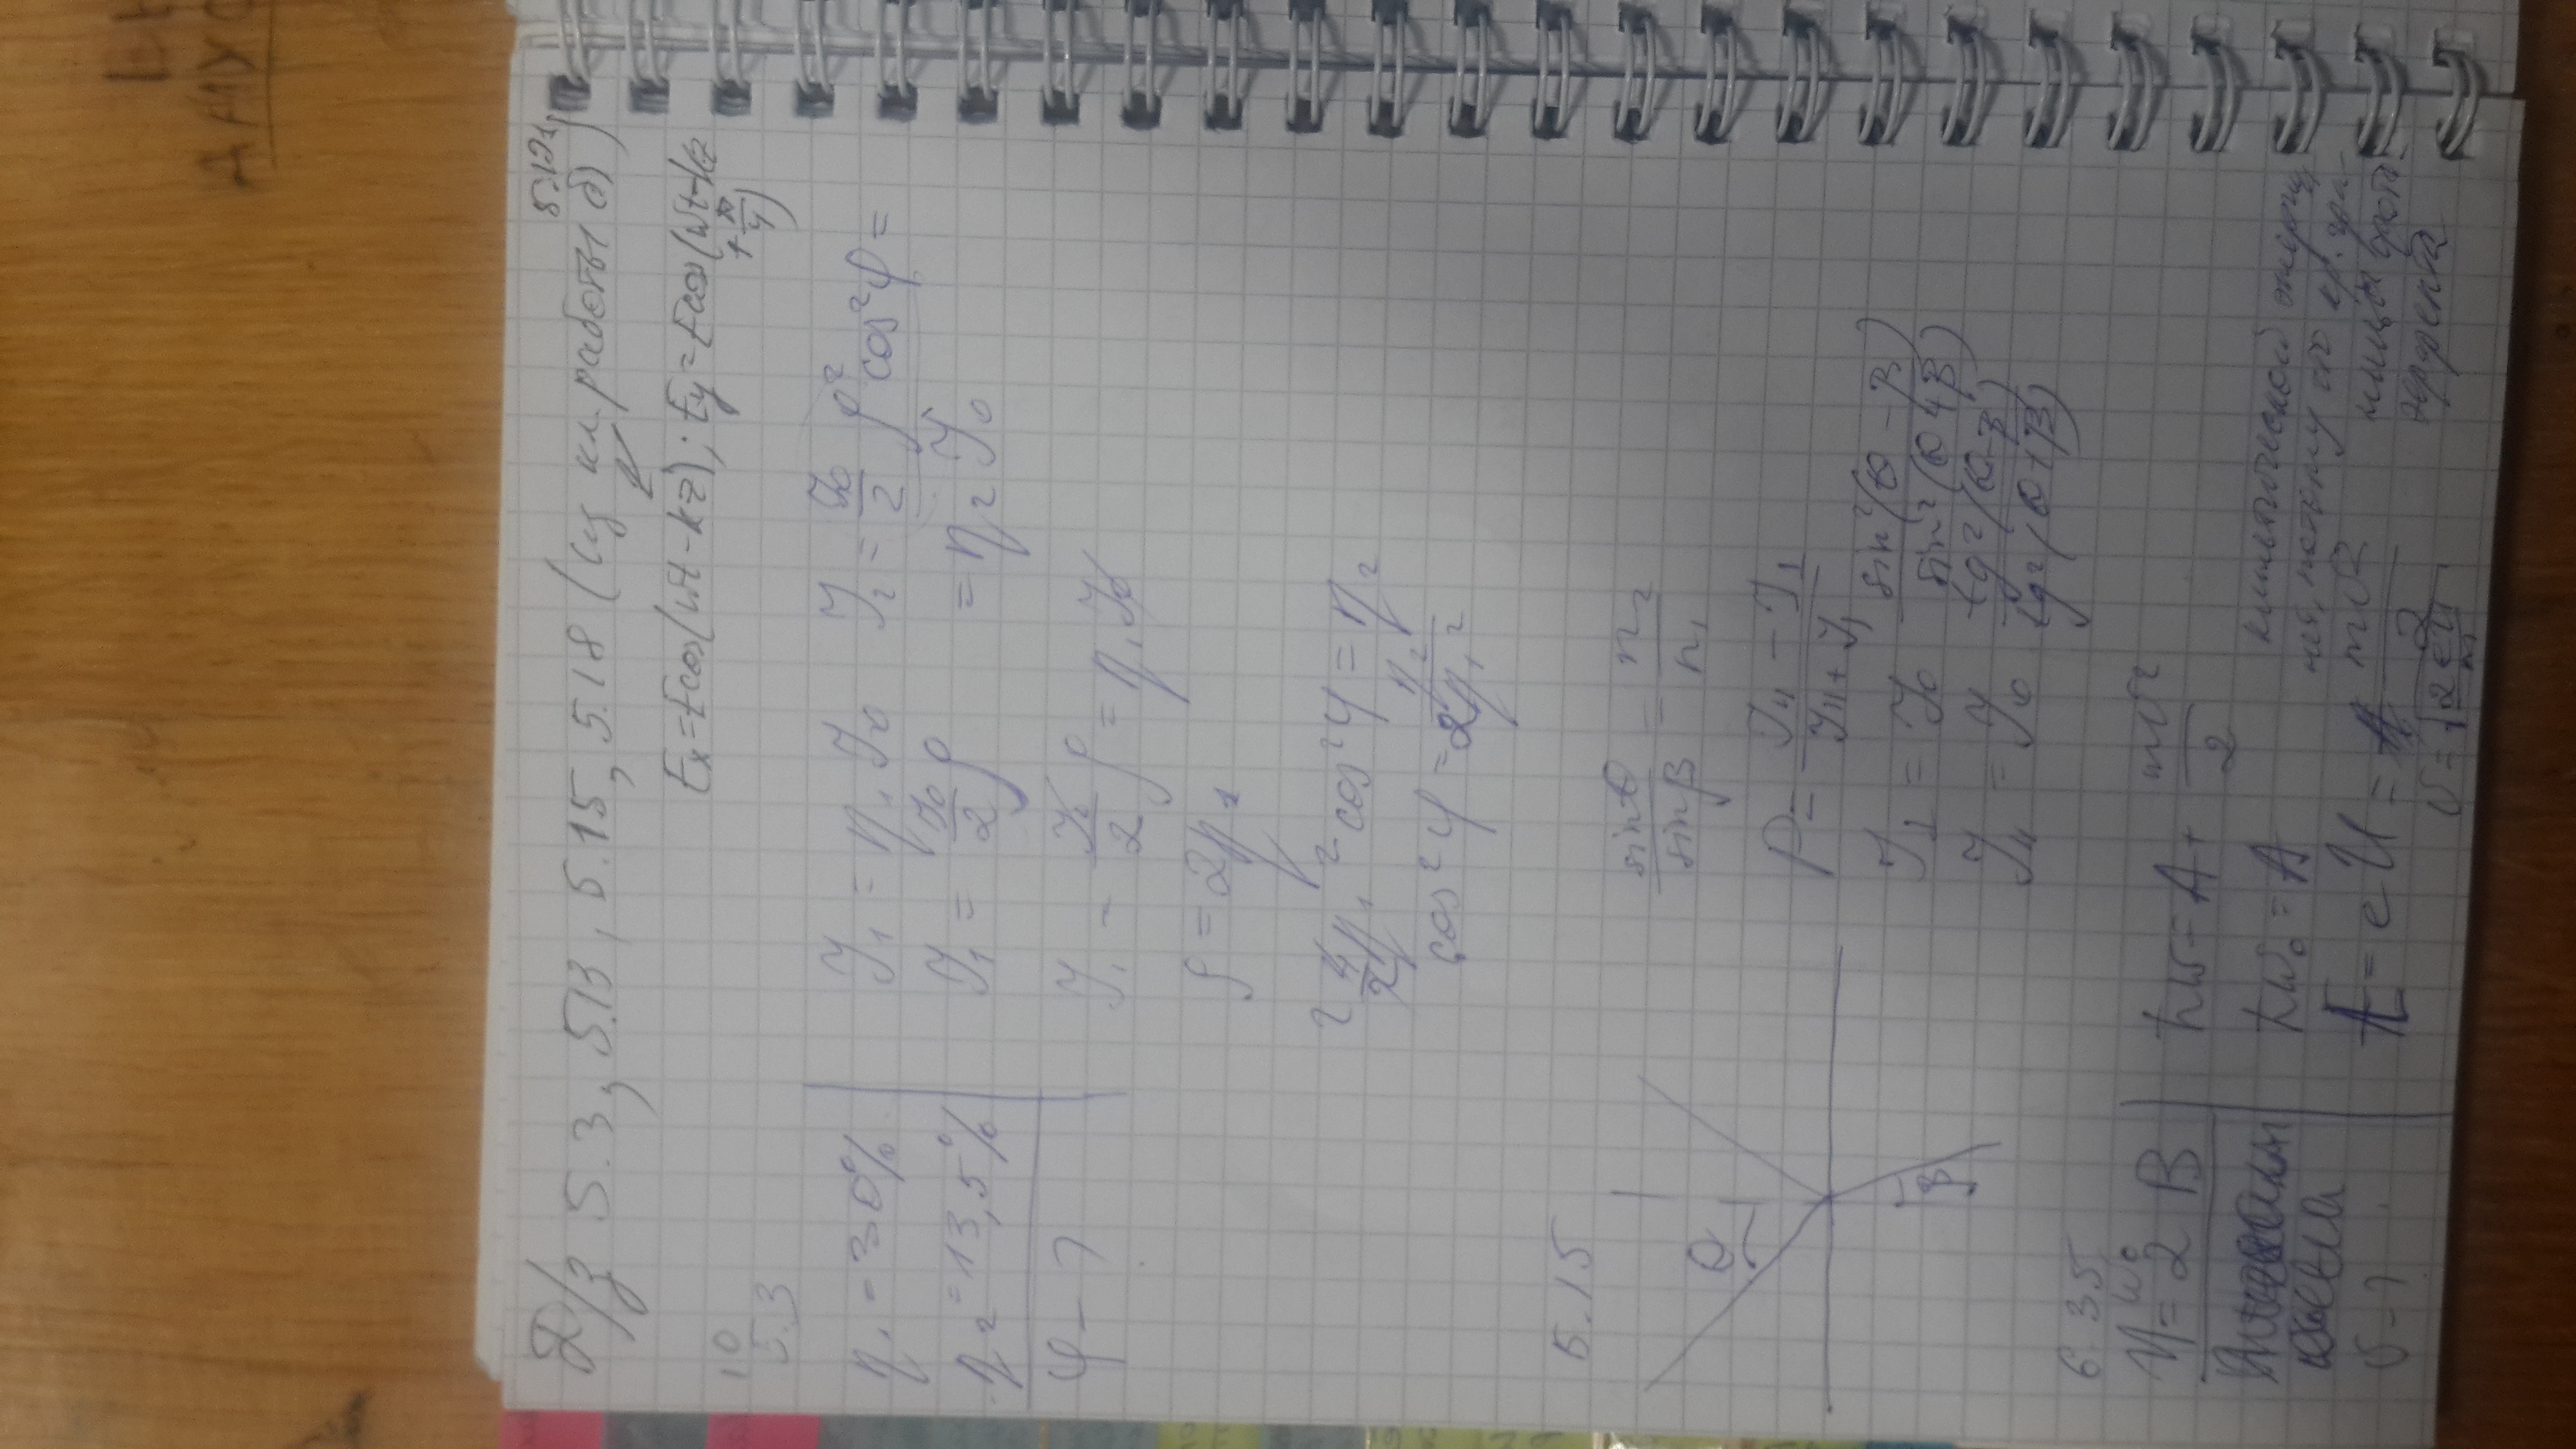 ДМУС
Д/з 5.3, 5.13, 5.15, 5.18 (из кл. работы б)
5.121,
Ex = E cos(ωt - kz); Ey = E cos(ωt - kz
+ π/4)
10
5.3
η₁ = 30%
η₂ = 13,5%
φ - ?
J₁ = η₁ J₀
J₂ = J₀/2 ρ² cos² φ =
= η₂ J₀
J₁ = J₀/2 ρ
J₁ = J₀/2 ρ = η₁ J₀
ρ = 2η₁
2 4/2 η₁² cos² φ = η₂
cos² φ = η₂/2η₁²
5.15
θ
β
sin θ/sin β = n₂/n₁
P = (J∥ - J⊥)/(J∥ + J⊥)
J⊥ = J₀ sin²(θ - β)/sin²(θ + β)
J∥ = J₀ tg²(θ - β)/tg²(θ + β)
6.35
ω₀
= 2 В
υ - ?
ħω = A + mυ²/2
ħω₀ = A
E = eU = mυ²/2
υ = √(2eU/m)
кинетической энергии
нет, потому что кр. гра-
ницы фото-
эффекта